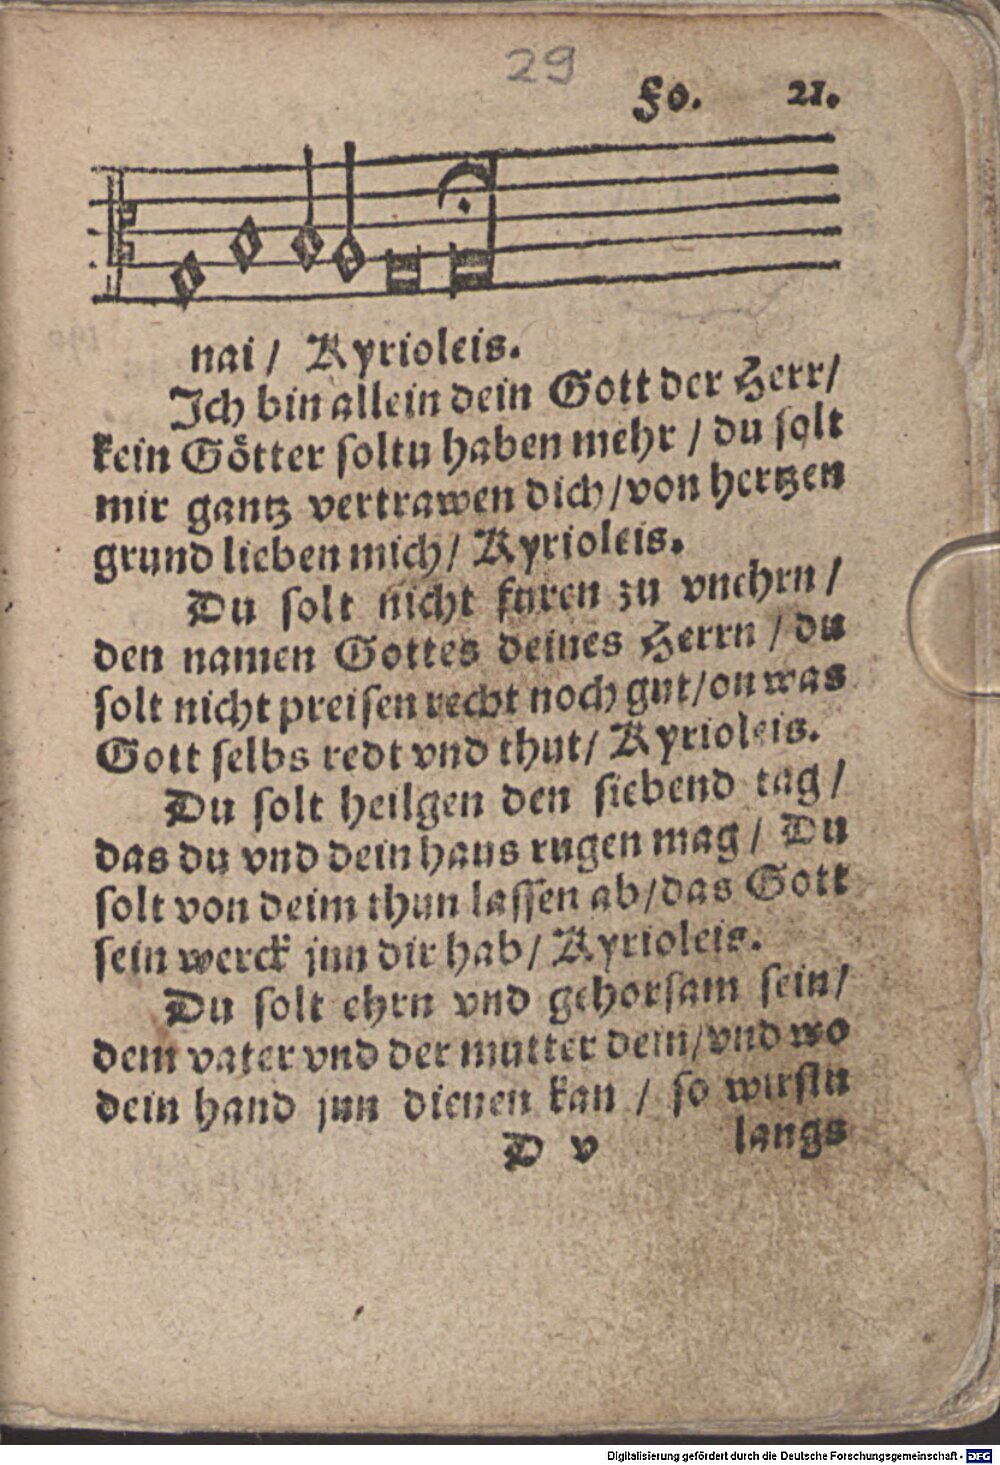 29
Fo. 21.
nai / Kyrioleis.
Ich bin allein dein Gott der Herr/
kein Götter soltu haben mehr / du solt
mir gantz vertrawen dich/von hertzen
grund lieben mich/ Kyrioleis.
Du solt nicht furen zu vnehrn /
den namen Gottes deines Herrn / du
solt nicht preisen recht noch gut/on was
Gott selbs redt vnd thut/ Kyrioleis.
Du solt heilgen den siebend tag /
das du vnd dein haus rugen mag / Du
solt von deim thun lassen ab/das Gott
sein werck jnn dir hab/ Kyrioleis.
Du solt ehrn vnd gehorsam sein/
dem vater vnd der mutter dein/vnd wo
dein hand jnn dienen kan / so wirstu
D v langs
Digitalisierung gefördert durch die Deutsche Forschungsgemeinschaft - DFG